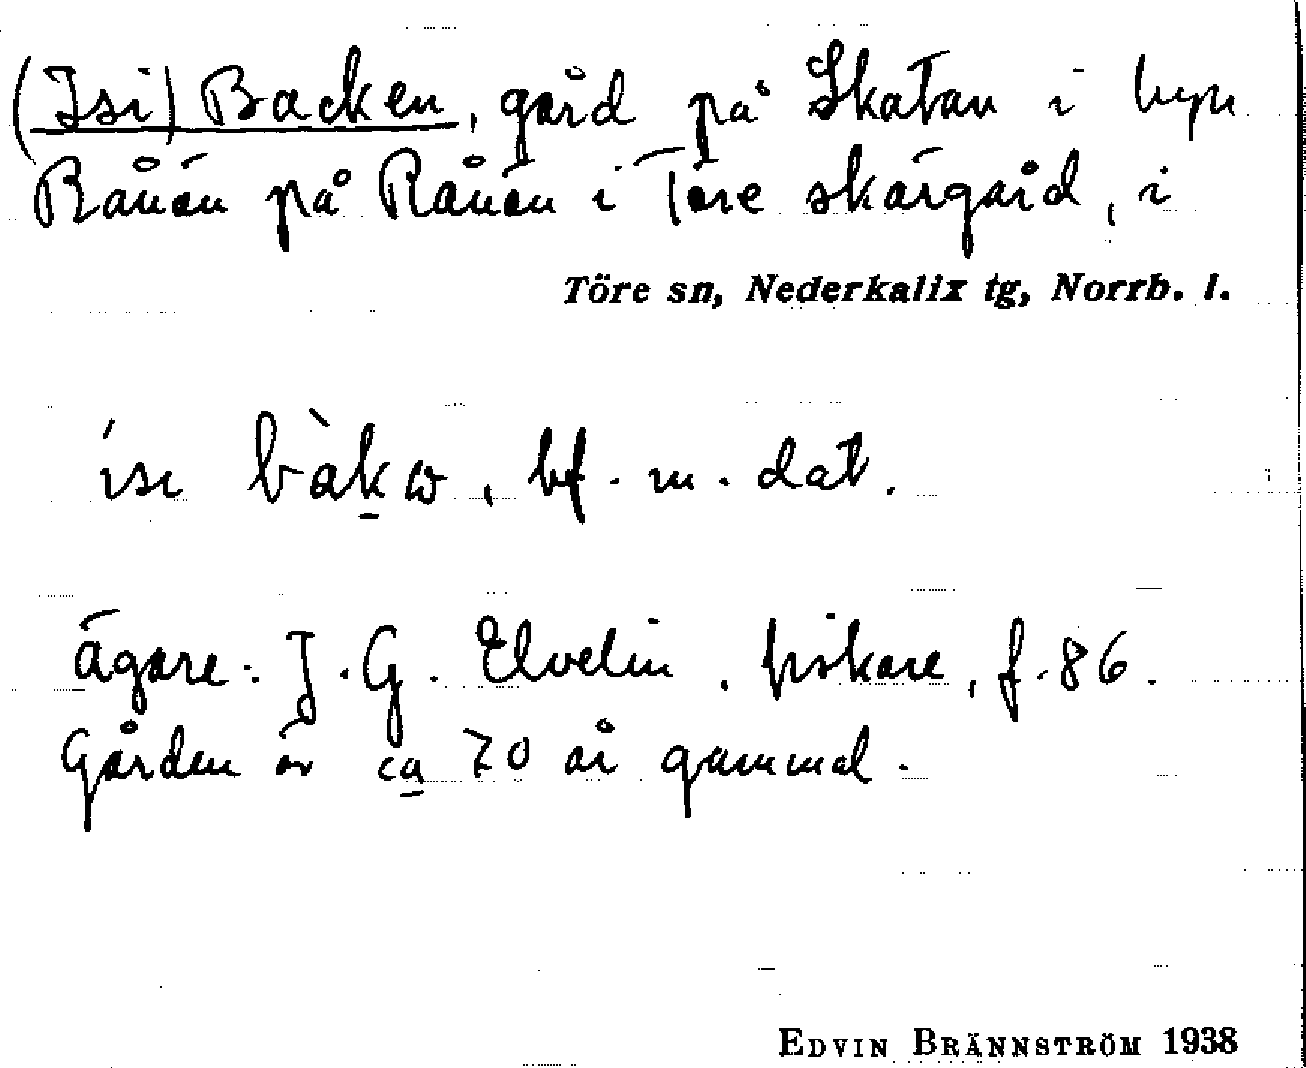 (Isi) Backen, gård på Skatan i byn
Rånön på Rånön i Töre skärgård, i
Töre sn, Nederkalix tg, Norrb. l.
ísı bàk̠ω, bf. m. dat.
ägare: J. G. Elvelin, fiskare, f. 86.
Gården är ca 70 år gammal.
EDVIN BRÄNNSTRÖM 1938